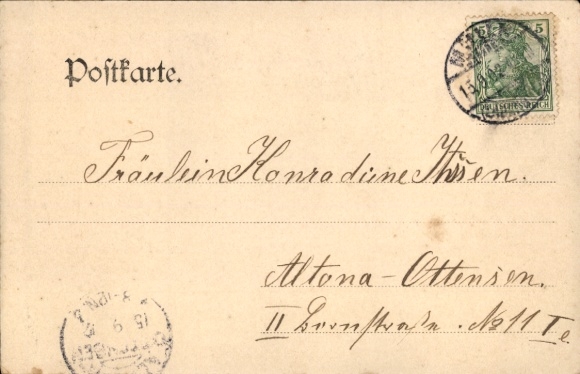 Postkarte.
5
DEUTSCHES REICH
Fräulein Konradine Thösen.
Altona-Ottensen.
II Bornstraße. No 11 I e.
15 9